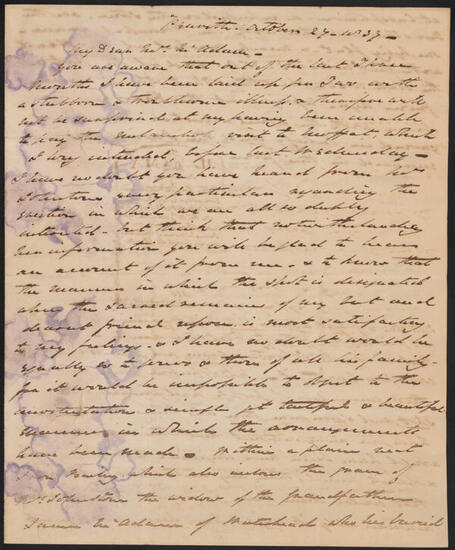 Penrith October 27 - 1837 -
My Dear Mrs McAdam -
You are aware that out of the last three
months I have been laid up for two with
a stubborn & troublesome illness, & therefore will
not be surprised at my having been unable
to pay the melancholy visit to Moffat which
I very intended, before last Wednesday -
I have no doubt you have heard from Mr
Johnstone every particular regarding the
question in which we are all so deeply
interested - but think that notwithstanding
his information you will be glad to have
an account of it from me - & to know that
the manner in which the spot is designated
where the sacred remains of my best and
dearest friend repose is most satisfactory
to my feelings - & I have no doubt would be
equally so to yours & those of all his family -
for it would be impossible to object to the
& simple yet tasteful & beautiful
manner in which the arrangements
have been made - Within a plain neat
Iron railing which also incloses the grave of
Mrs Johnstone the widow of the Grandfather
James McAdam of Waterhead who lies buried